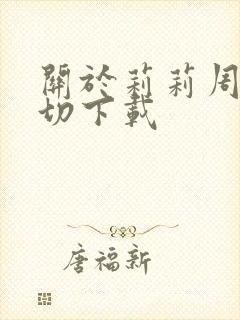 關於莉莉周
切下載
唐福新